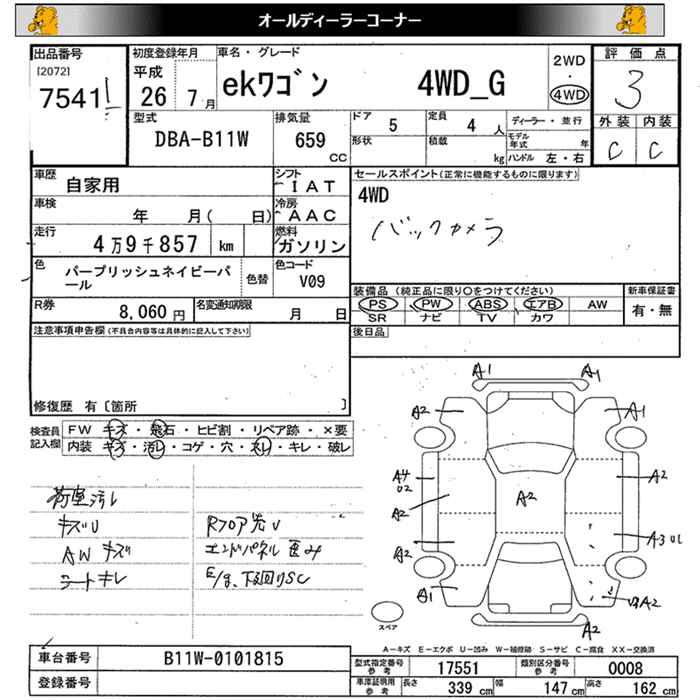 オールディーラーコーナー
出品番号
[2072]
7541
初度登録年月
平成
26 7月
車名・グレード
ekワゴン 4WD_G
2WD
・
4WD
評価点
3
外装 内装
C C
型式
DBA-B11W
排気量
659
CC
ドア
5
定員
4 人
形状
積載
kg
ディーラー・並行
モデル年式 年
ハンドル 左・右
車歴
自家用
シフト
IAT
車検
年 月( 日)
冷房
AAC
走行
4万9千857 km
燃料
ガソリン
色
パープリッシュネイビーパール
色替
色コード
V09
R券
8,060円
名変通知期限
月 日
セールスポイント(正常に機能するものに限ります)
4WD
バックカメラ
装備品(純正品に限り○をつけてください)
PS PW ABS エアB AW
SR ナビ TV カワ
新車保証書
有・無
後日品
注意事項申告欄(不具合内容等は具体的に記入して下さい)
修復歴 有〔箇所 〕
検査員記入欄
FW キズ・飛石・ヒビ割・リペア跡・×要
内装 キズ・汚レ・コゲ・穴・スレ・キレ・破レ
荷室汚レ
キズU
AWキズ
シートキレ
Rフロア先U
エンドパネル歪み
E/g、下回りSC
A1 A1
A2 A1
A4
U2
A2
A2
A2
A2
A3
A1
A2
A2
スペア
A－キズ E－エクボ U－凹み W－補修跡 S－サビ C－腐食 XX－交換済
車台番号
B11W-0101815
登録番号
型式指定番号
参考
17551
類別区分番号
参考
0008
車庫証明用
参考
長さ 339 cm
幅 147 cm
高さ 162 cm